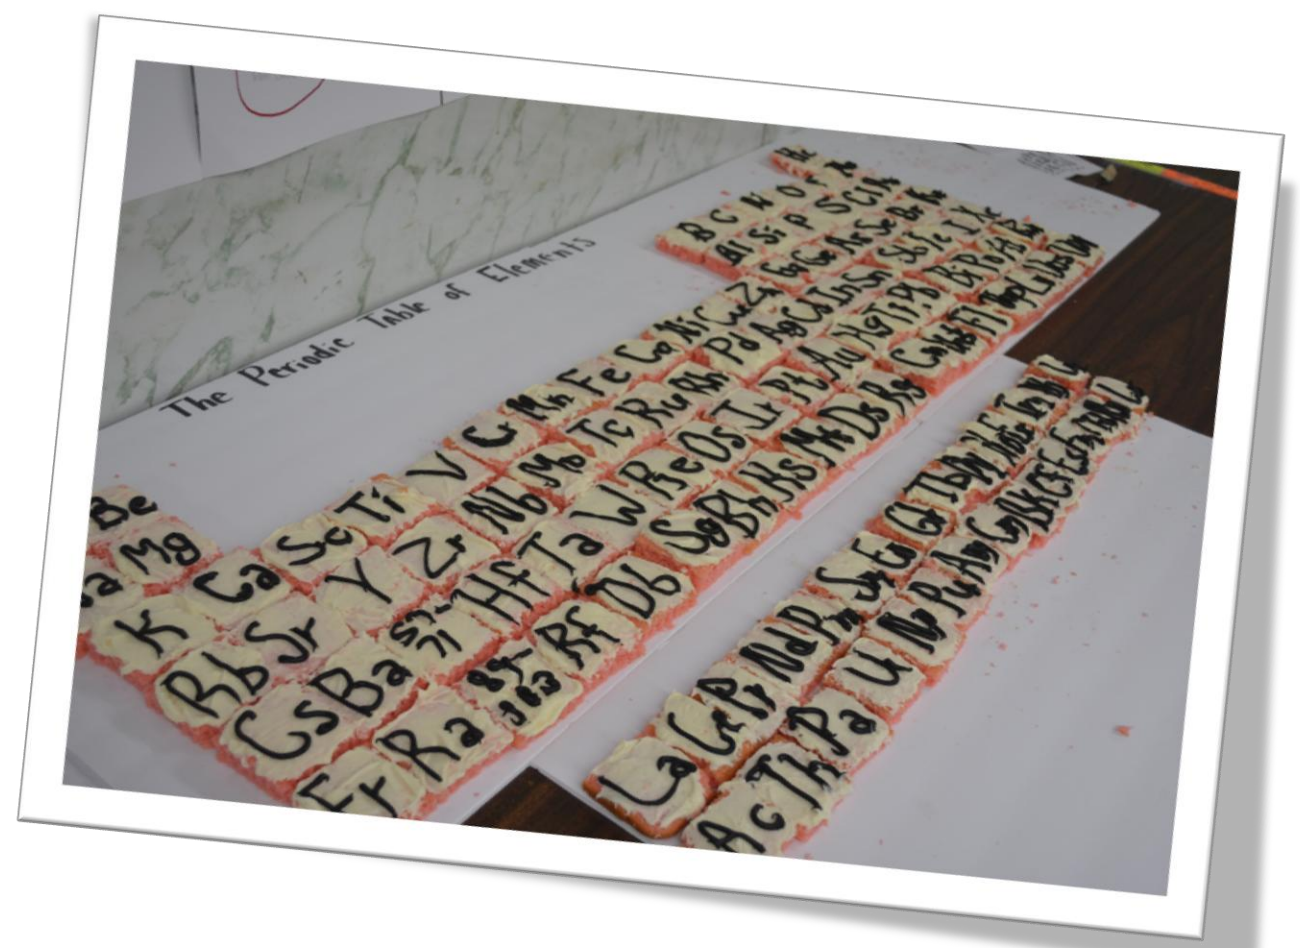 The Periodic Table of Elements
He
Be B C N O F Ne
Mg Al Si P S Cl Ar
K Ca Sc Ti V C Mn Fe Co Ni Cu Zn Ga Ge As Se Br Kr
Rb Sr Y Zr Nb Mo Tc Ru Rh Pd Ag Cd In Sn Sb Te I Xe
Cs Ba 57-71 Hf Ta W Re Os Ir Pt Au Hg Tl Pb Bi Po At Rn
Fr Ra 89-103 Rf Db Sg Bh Hs Mt Ds Rg Cn Fl Lv
La Ce Pr Nd Pm Sm Eu Gd Tb Dy Ho Er Tm Yb
Ac Th Pa U Np Pu Am Cm Bk Cf Es Fm